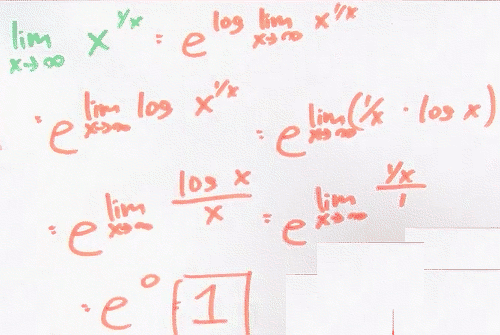 lim x→∞ x^{1/x} = e^{log lim x→∞ x^{1/x}}
= e^{lim x→∞ log x^{1/x}} = e^{lim x→∞ (1/x · log x)}
= e^{lim x→∞ \frac{log x}{x}} = e^{lim x→∞ \frac{1/x}{1}}
= e^0 = 1